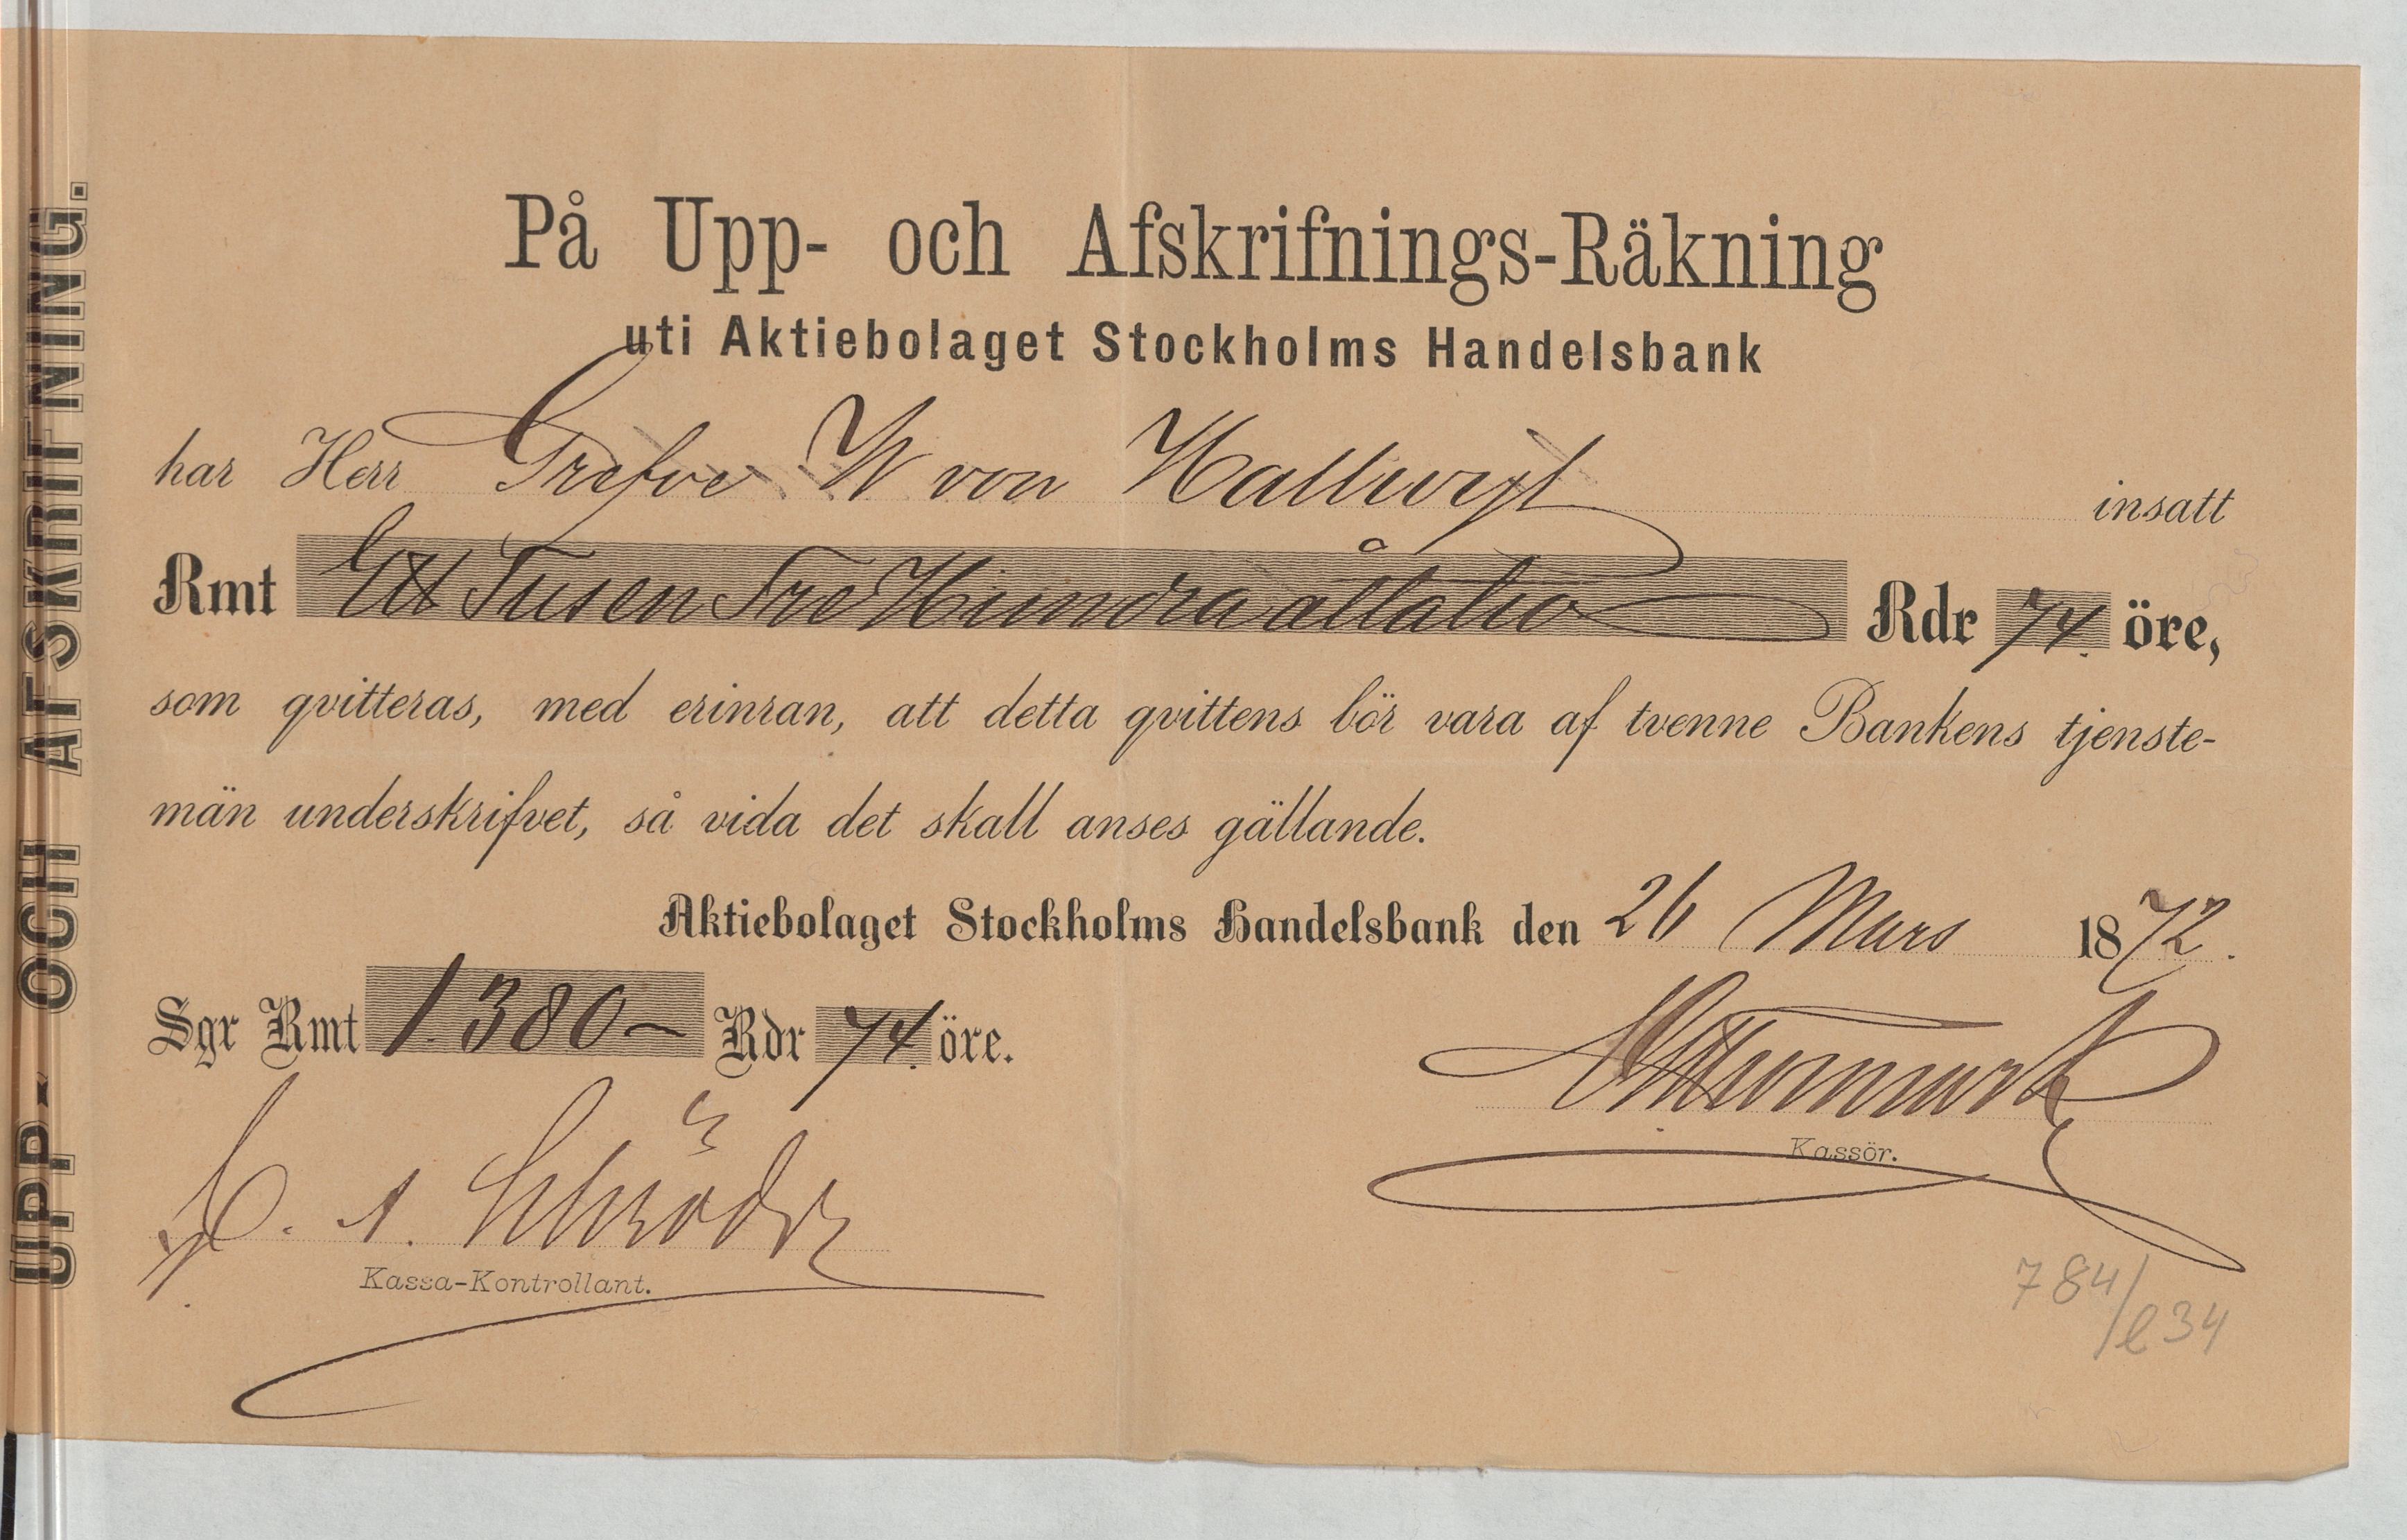 UPP- OCH AFSKRIFNING.
På Upp- och Afskrifnings-Räkning
uti Aktiebolaget Stockholms Handelsbank
har Herr Grefve W von Hallwyl insatt
Rmt Ett Tusen Tre Hundra åttatio Rdr 74. öre,
som qvitteras, med erinran, att detta qvittens bör vara af tvenne Bankens tjenste-
män underskrifvet, så vida det skall anses gällande.
Aktiebolaget Stockholms Handelsbank den 26 Mars 1872.
Sgr Rmt 1.380- Rdr 74. öre.
Kassör.
Schröder
Kassa-Kontrollant.
784/
l34